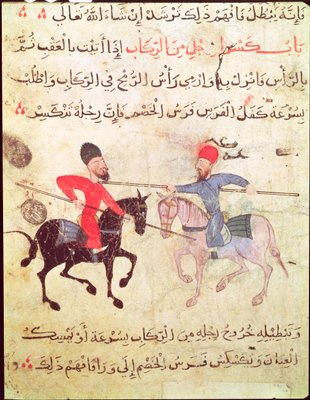 فإنه يبطل فافهم ذلك ترشد إن شاء الله تعالى
باب كسر رجل من الركاب إذا بالعقب ثم
بالرأس وارمي رأس الرمح في الركاب واطلب
بسرعة كفل الفرس فرس الخصم فإن رجله تنكسر
وتبطيله خروج رجله من الركاب بسرعة أو
العنان فرس الخصم إلى ورا فافهم ذلك